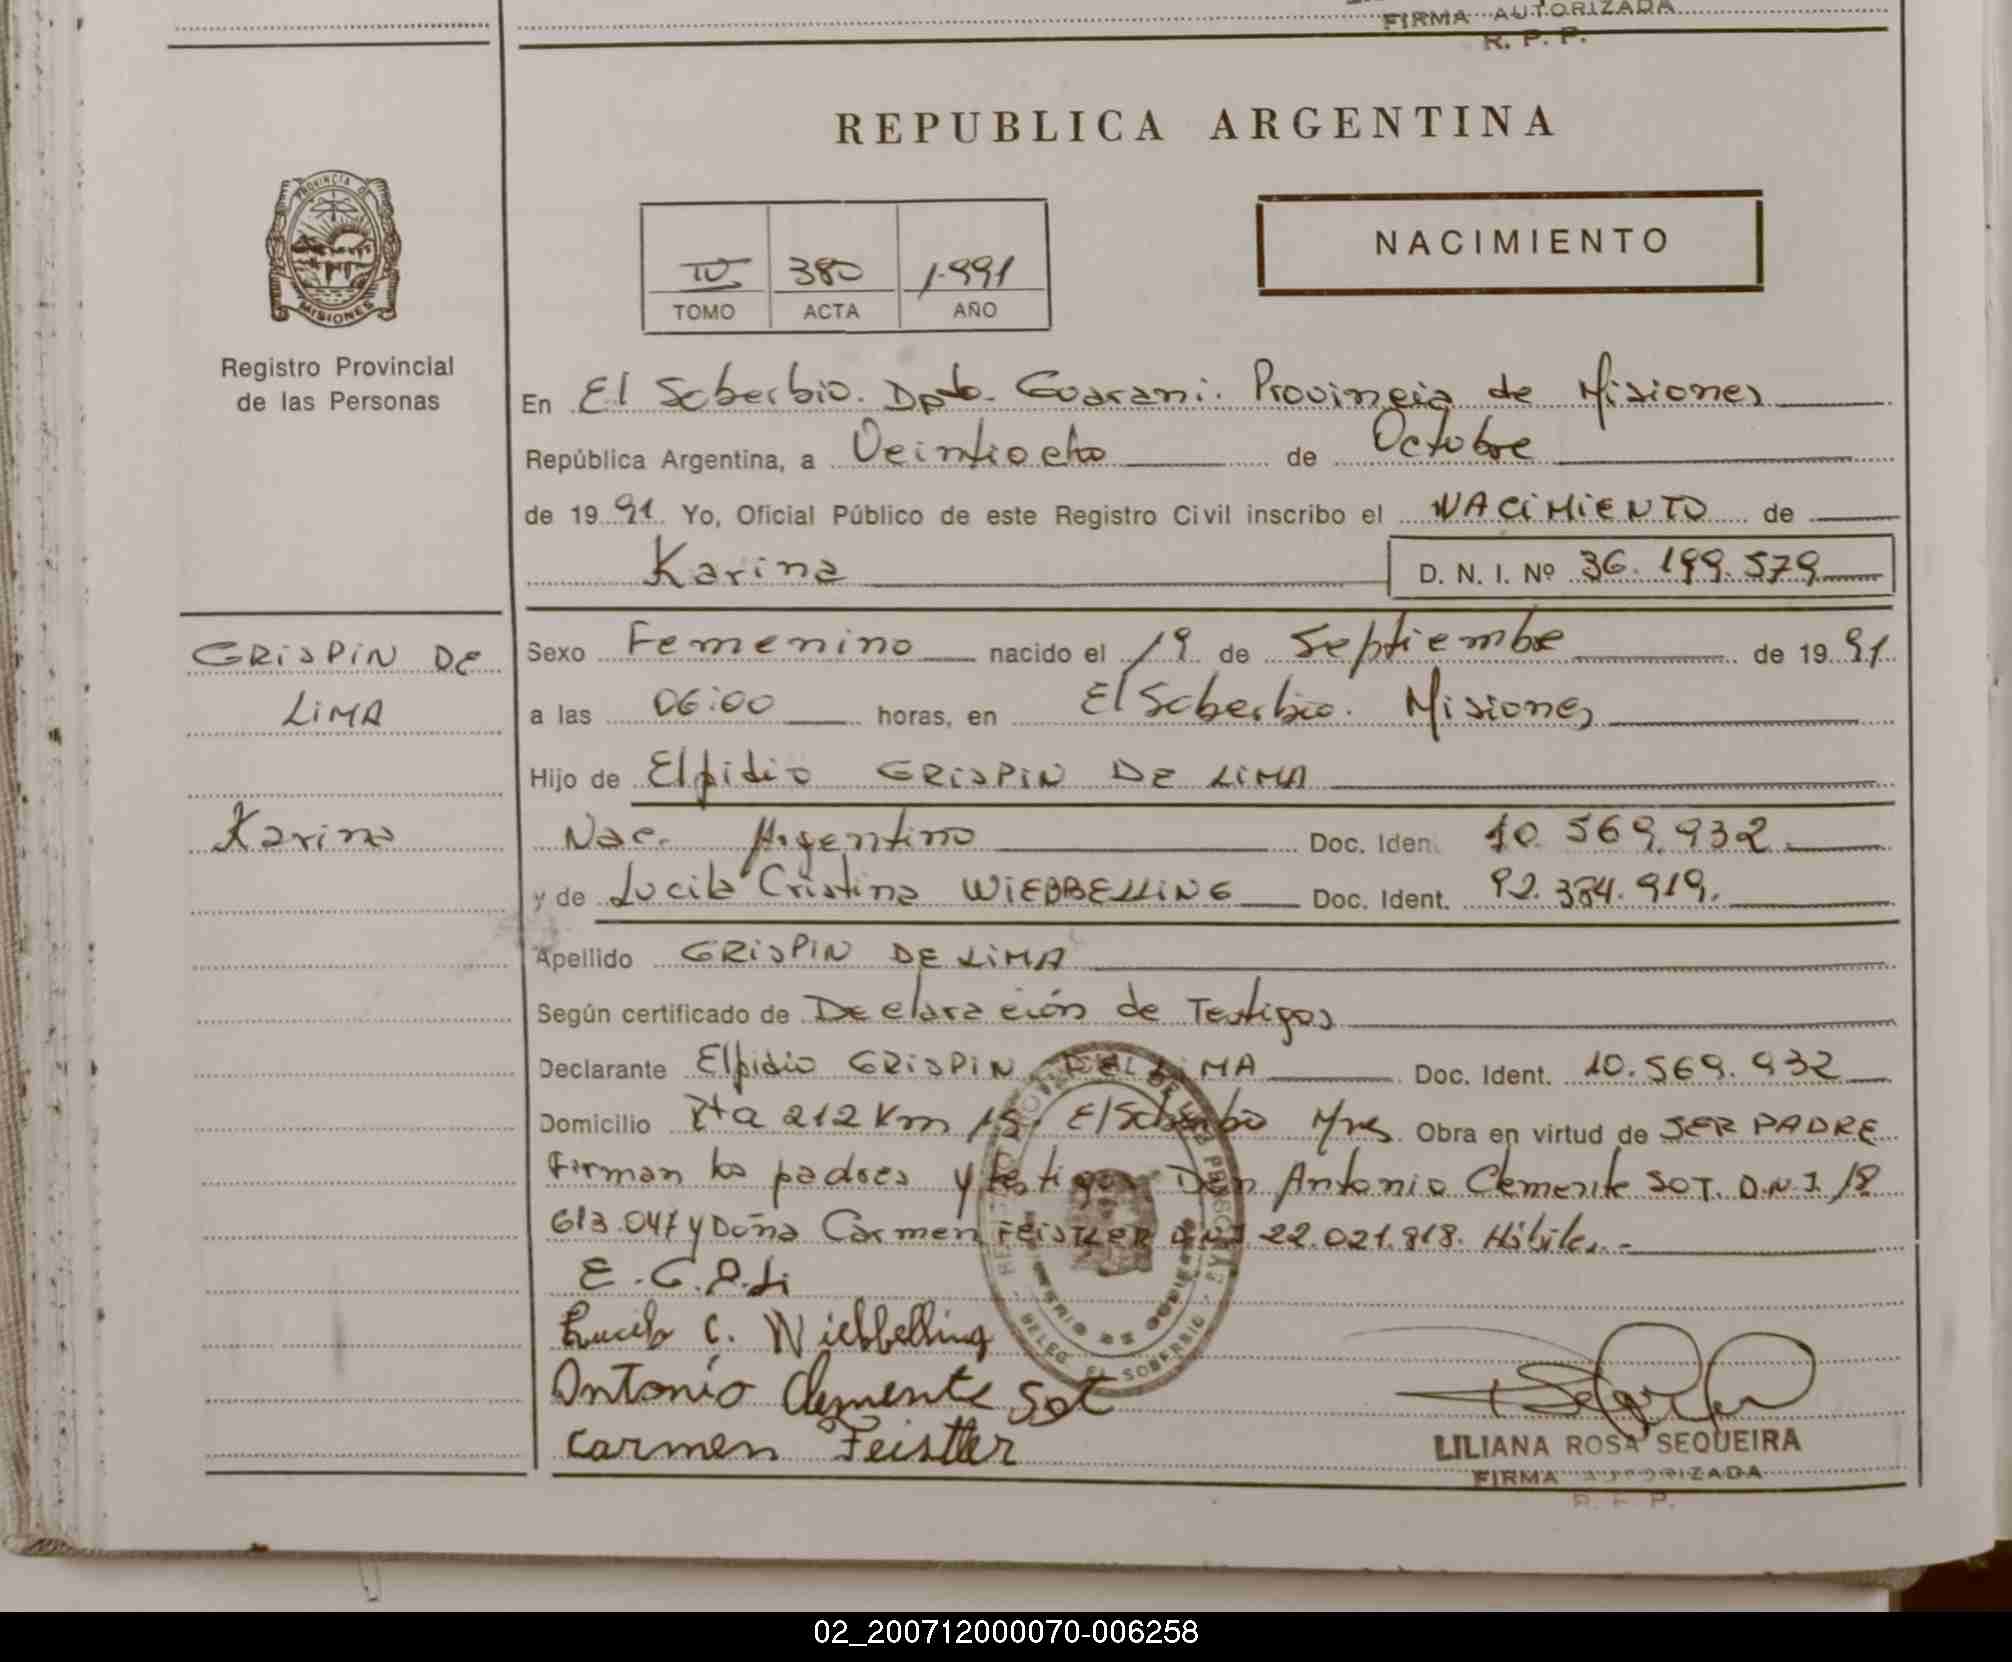 FIRMA AUTORIZADA
R. P. P.
REPUBLICA ARGENTINA
PROVINCIA DE
MISIONES
Registro Provincial
de las Personas
IV 380 1.991
TOMO ACTA AÑO
NACIMIENTO
En El Soberbio. Dpto. Guarani. Provincia de Misiones
República Argentina, a Veintiocho de Octubre
de 19 91 Yo, Oficial Público de este Registro Civil inscribo el NACIMIENTO de
Karina D. N. I. Nº 36.199.579
GRISPIN DE
LIMA
Karina
Sexo Femenino nacido el 19 de Septiembre de 19 91
a las 06:00 horas, en El Soberbio. Misiones
Hijo de Elpidio GRISPIN DE LIMA
Nac. Argentino Doc. Iden. 10.569.932
y de Lucila Cristina WIEBBELLING Doc. Ident. 92.384.919.
Apellido GRISPIN DE LIMA
Según certificado de Declaración de Testigos
Declarante Elpidio GRISPIN DE LIMA Doc. Ident. 10.569.932
Domicilio Rta 212 Km 15. El Soberbio Mnes. Obra en virtud de SER PADRE
Firman los padres y testigos Don Antonio Clemente SOT. D.N.I. 18
613.047 y Doña Carmen FEISTLER D.N.I 22.021.818. Hábiles.-
E.G.D.Li
Lucila C. Wiebbelling
Antonio Clemente Sot
Carmen Feistler
DELEG. EL SOBERBIO
LILIANA ROSA SEQUEIRA
FIRMA AUTORIZADA
R. P. P.
02_200712000070-006258